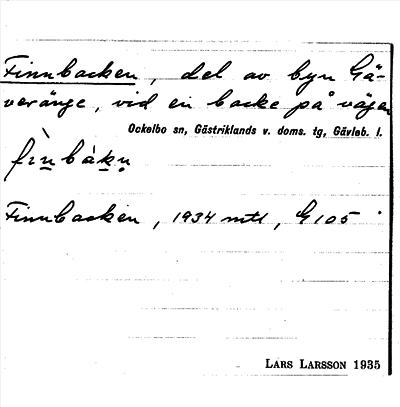 Finnbacken, del av byn Gä-
veränge, vid en backe på vägen
Ockelbo sn, Gästriklands v. doms. tg, Gävleb. l.
fìn̲bàk̲n̥
Finnbacken, 1934 mtl, G 105
LARS LARSSON 1935